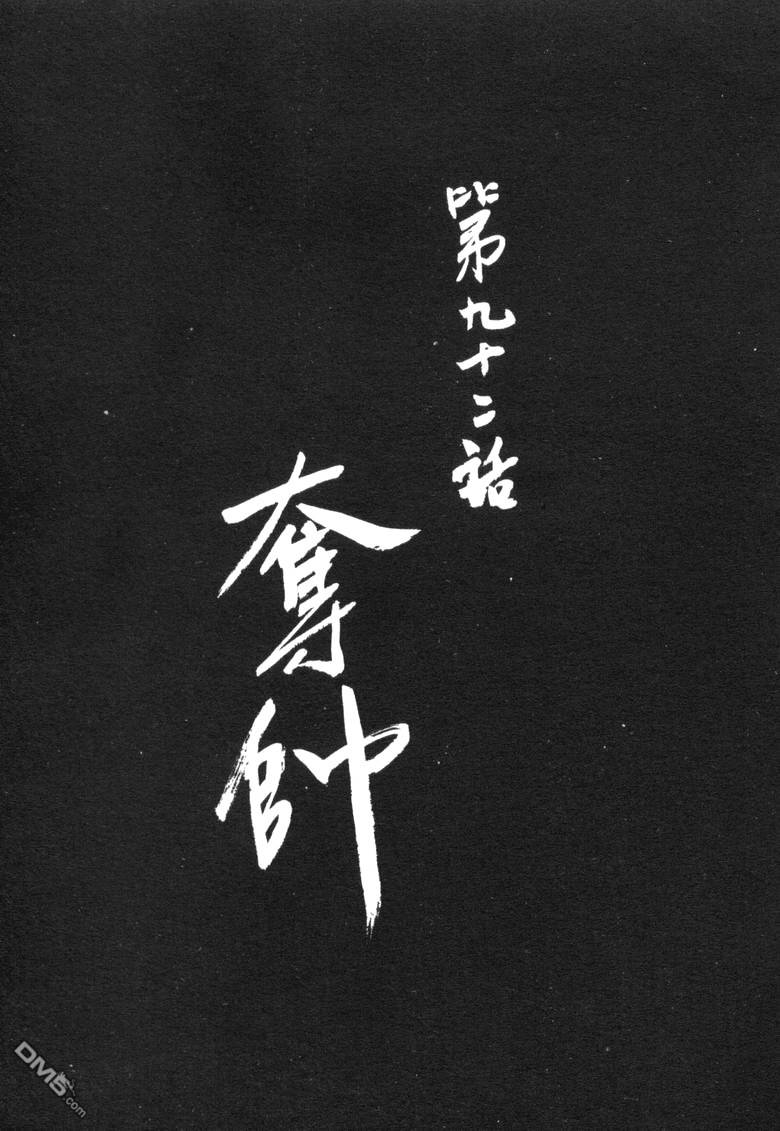 第九十二話
奪帥
DM5.com